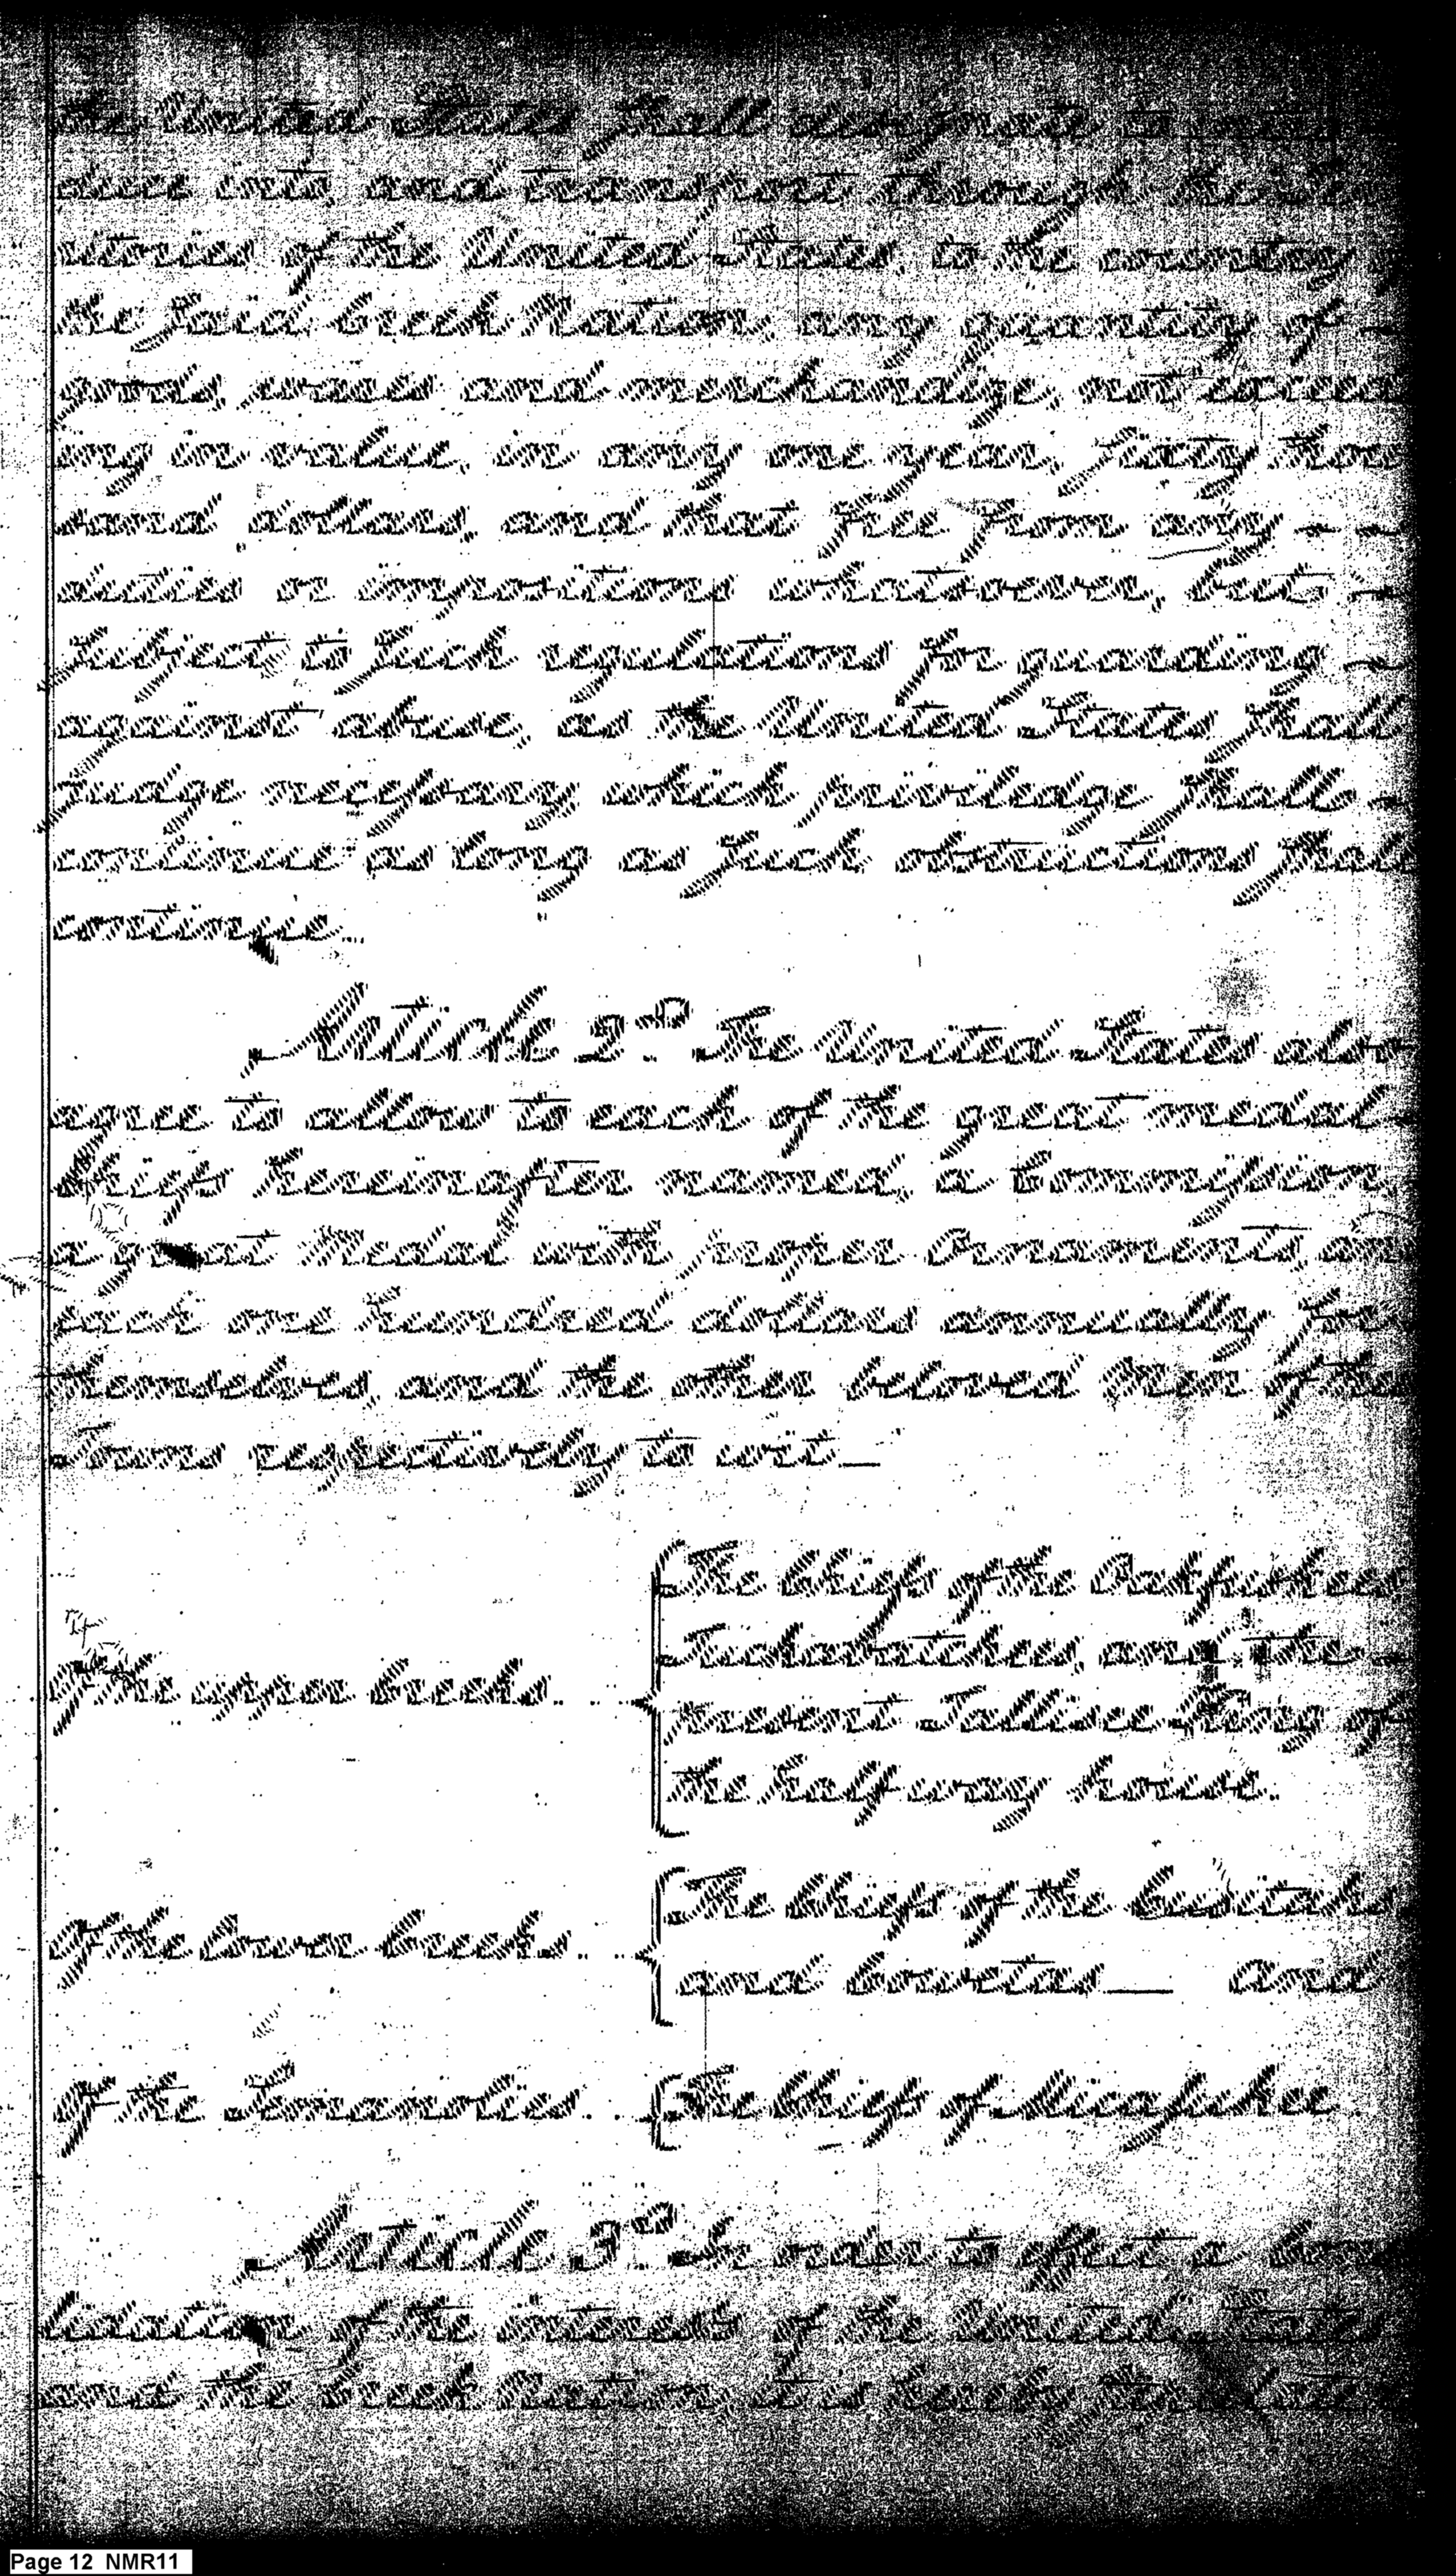 the United States shall designate to
duce into, and transport through the
ritories of the United States, to the country
the said Creek Nation, any quantity of
goods, wares and merchandize, not exceed
ing in value, in any one year, sixty thou
sand dollars, and that free from any
duties or impositions whatsoever, but
subject to such regulations for guarding
against abuse, as the United States shall
judge necessary which priviledge shall
continue as long as such obstructions shall
continue.
Article 2.d The United States also
agree to allow to each of the great medal
Chiefs hereinafter named, a Commission,
a great Medal with proper Ornaments, and
each one hundred dollars annually for
themselves, and the other beloved Men of their
Towns respectively to wit_
Of the upper Creeks. { The Chiefs of the Oakfuskees
Tuckabatchees, and the
present Tallisee King of
the half way house.
Of the lower Creeks. { The Chiefs of the Cusitahs
and Cowetas_ And
Of the Simanolies. { The Chief of Micasukee
Article 3.d In order to effect a con
lidation of the interests of the United States
and the Creek Nation, it is hereby
Page 12 NMR11